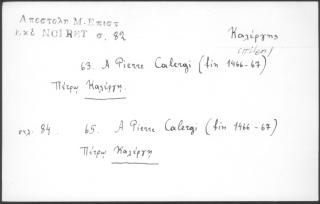 Αποστολη Μ-Επιστ
Εκδ NOIRET σ. 82
Καλέργης
63. A Pierre Calergi (fin 1466-67)
Πέτρῳ Καλέργῃ.
σελ. 84. 65. A Pierre Calergi (fin 1466-67)
Πέτρῳ Καλέργῃ